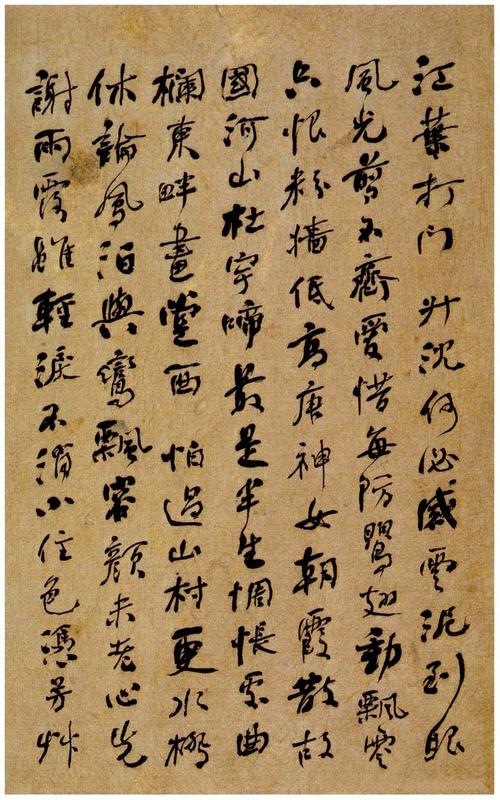 江葉打门 升沈何必感雲泥到眼
風光剪不齊愛惜每防鸎翅動飄零
只恨粉墻低高唐神女朝霞散故
國河山杜宇啼最是半生惆悵處曲
欄東畔畫堂西 怕過山村更水橋
休論鳳泊與鸞飄容顏未老心先
謝雨露雖輕淚不消小住色憑芳艸